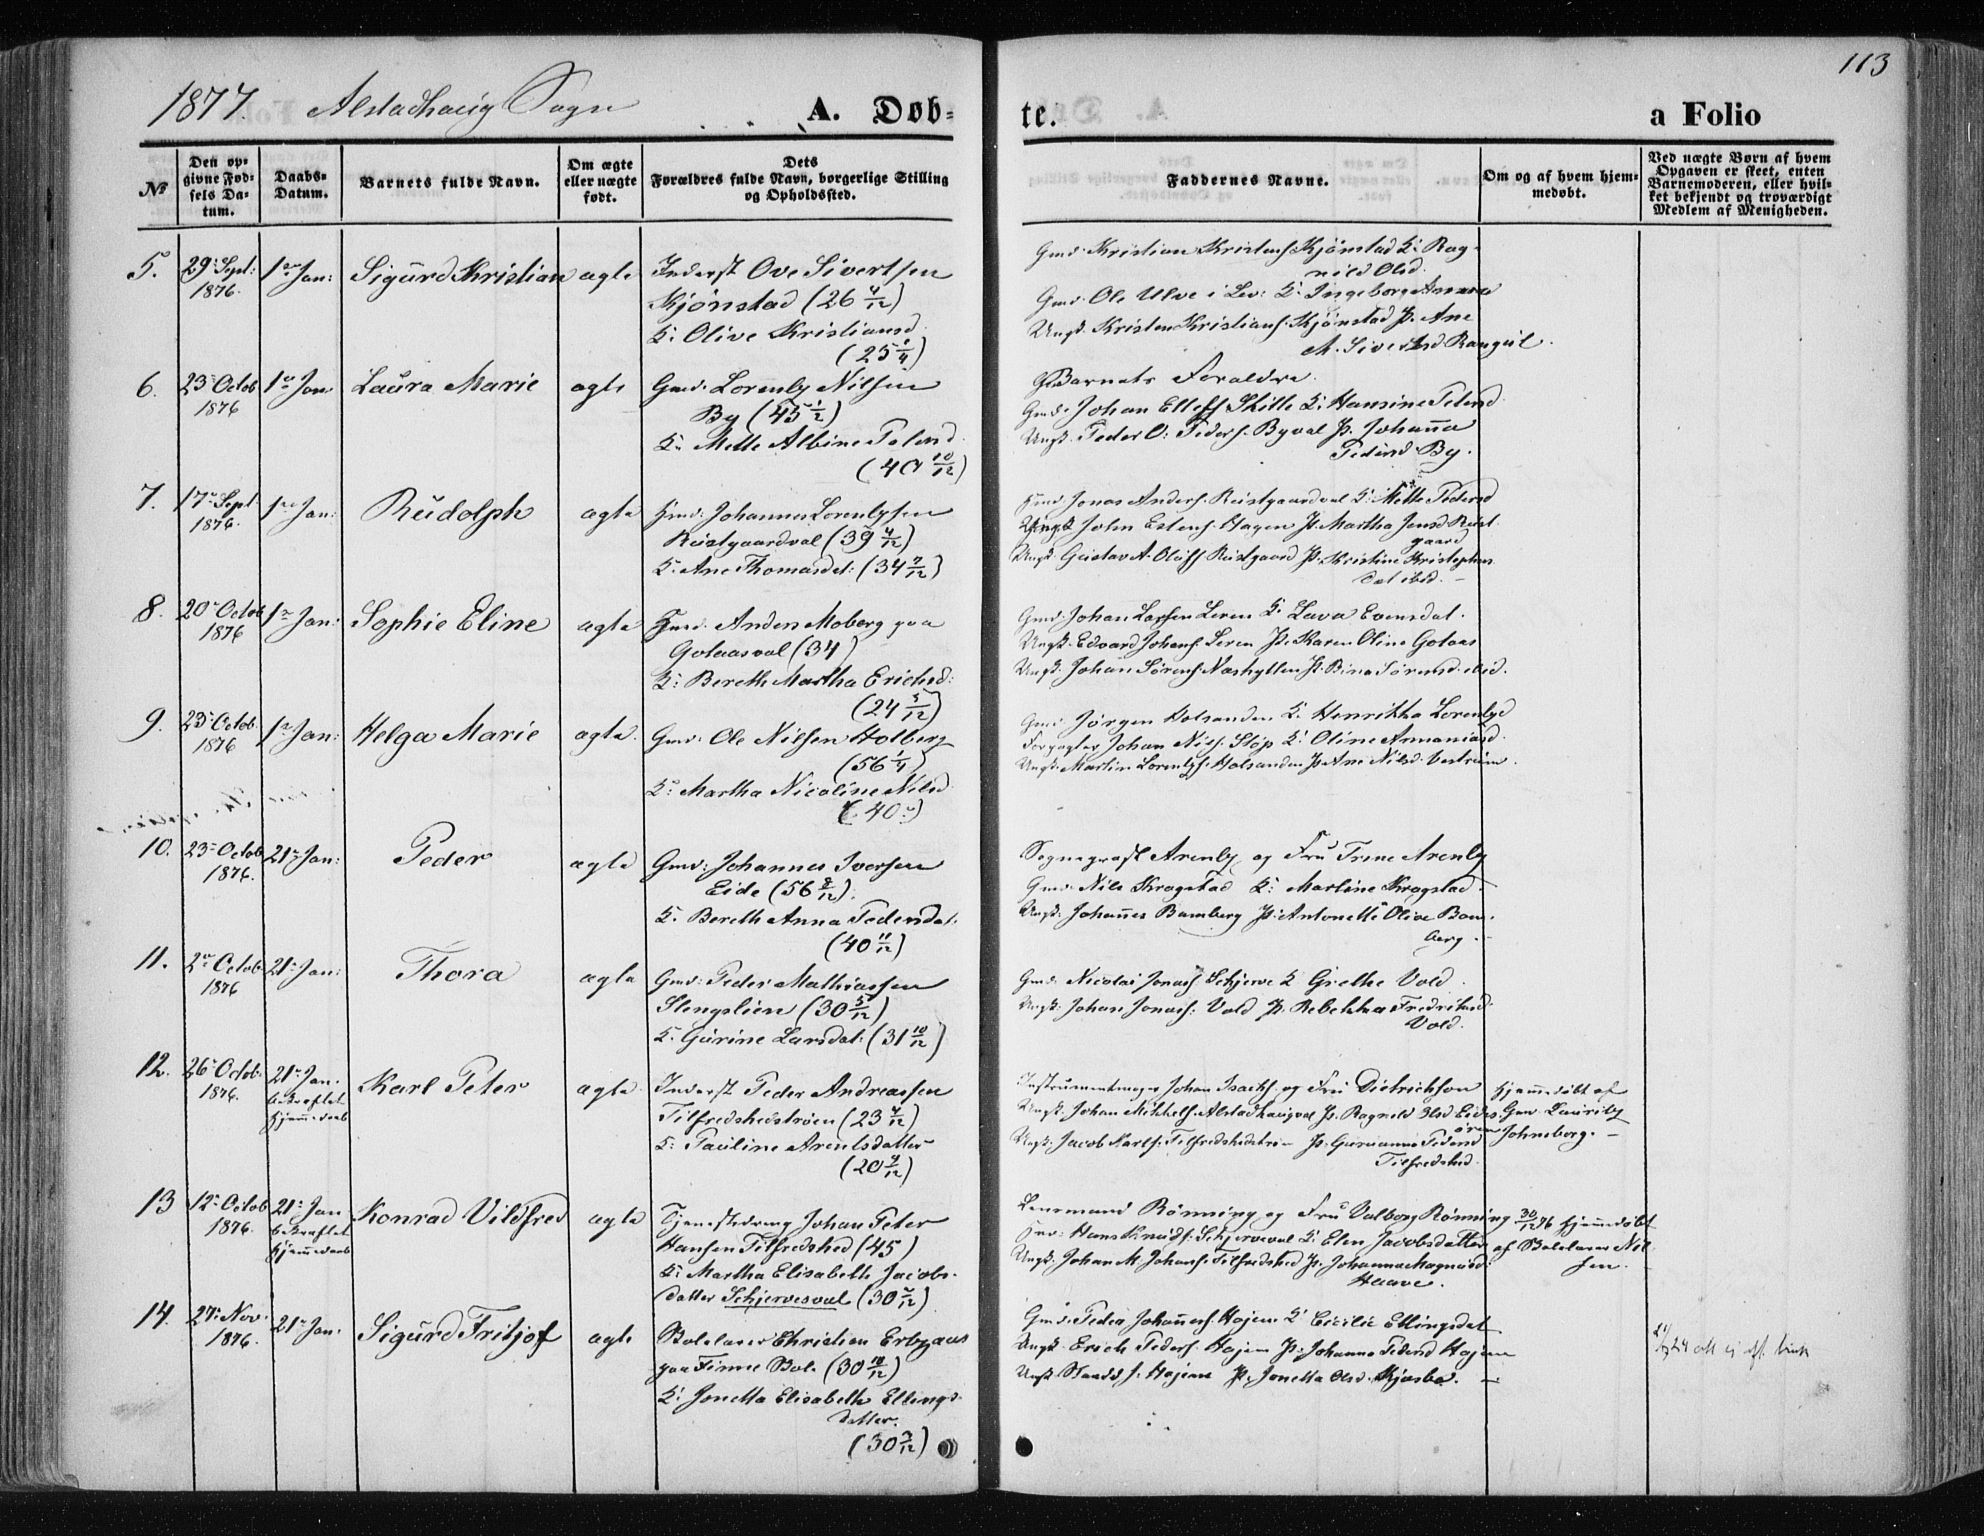 113
1877. Alstadhaug Sogn
A. Døb-
te.
a Folio
No
Den op-
givne Fød-
sels Da-
tum.
Daabs-
Datum.
Barnets fulde Navn.
Om ægte
eller uægte
født.
Dets
Forældres fulde Navn, borgerlige Stilling
og Opholdssted.
Faddernes Navne.
Om og af hvem hjem-
medøbt.
Ved uægte Børn af hvem
Opgaven er skeet, enten
Barnemoderen, eller hvil-
ket bekjendt og troværdigt
Medlem af Menigheden.
5. 29: Sept: 1ste Jan: Sigurd Kristian ægte Inderst Ove Sivertsen
1876.
Kjönstad (26 4/12)
K: Olive Kristiansd.
(25 1/4)
Gmd. Kristian Kristens. Kjönstad K: Rag-
nild Olsd.
Gmd. Ole Ulve i Lev: K: Ingeborg Anna
Ungk. Kristen Kristians. Kjönstad P. Ane
M. Sivertsd
6. 23 Octob 1ste Jan Laura Marie ægte Gmd. Lorentz Nilsen
1876
By (45 1/2)
K: Mette Albine Petersd.
(40 10/12)
Barnets Forældre.
Gmd. Johan Ellefs. K: Hansine Petersd.
Ungk. Peder O: Peders. Byval P. Johanna
Pedersd By.
7. 17 Sept 1ste Jan: Rudolph ægte Hmd: Johannes Lorentzsen
1876.
Rustgaardval (39 4/12)
K. Ane Thomasdt: (34 7/12)
Hmd Jonas Anders. Rustgaardval K: Mette Pedersd
Ungk John Estens. Hagen P. Martha Jensd Rust-
gaard
Ungk. Gustav A. Olufs. Rustgaard P. Kristine Kristophers
dat ibid. —
8. 20 Octob 1ste Jan: Sophie Eline ægte Hmd. Anders Moberg paa
1876
Golaasval (34)
K: Bereth Martha Erichsd:
(24 5/12)
Gmd Johan Larsen Leren K. Lava Evensdat.
Ungk. Edvard Johans. Leren P. Karen Oline Golaas
Ungk. Johan Sørens. Næshytten P. Bina Sørensd. ibid.
9. 23 Octob. 1ste Jan: Helga Marie ægte. Gmd: Ole Nilsen Holberg
1876
(56 1/4)
K: Martha Nicoline Nilsd
(40)
Gmd Jørgen Holsanden K. Henrikka Lorentzd
Forpagter Johan Nils. Støp K: Oline
Ungk. Martin Lorentzs. Holsanden P. Ane Nilsd.
10. 23 Octob 21 Jan: Peder ægte Gmd: Johannes Iversen
1876.
Eide (56 8/12).
K. Bereth Anna Pedersdat.
(40 11/12)
Sogneprest Arentz og Fru Trine Arentz
Gmd. Nils Kragstad K: Martine Kragstad.
Ungk: Johannes Bamberg P. Antonette Olive Bam-
berg. —
11. 2 Octob 21 Jan: Thora ægte Gmd: Peder Mathiassen
1876
Stengslien (30 5/12)
K. Gurine Larsdat: (31 10/12)
Gmd. Nicolai Jonas. Schjerve K Grethe Vold.
Ungk: Johan Jonas: Vold P. Rebekka Fredriksd
Vold.
12. 26 Octob. 21 Jan. Karl Peter ægte Inderst Peder Andreassen
1876.
bekræftet
Hjemmedaab
Tilfredshedströen (23 4/12)
K: Pauline Arentsdatter
(20 4/12)
Instrumentmager Johan Isachs. og Fru Dietrichson
Ungk. Johan Mikkels. Alstadhaugval P. Ragnild Olsd Eides-
øren
Ungk: Jacob Karls: Tilfredshedströen P: Gurianna Pedersd
Tilfredshed.
Hjemmedøbt af
Gmd. Lauritz
Johnsborg. —
13 12 Octob 21 Jan Konrad Vildfred ægte Tjenestedreng Johan Peter
1876.
bekræftet
Hjemmedaab
Hansen Tilfredshed (45)
K: Martha Elisabeth Jacobs-
datter Schjervesval (30 2/12)
Lensmand Rønning og Fru Valborg Rønning
Hmd: Hans Knuds. Schjerveval K: Elen Jacobsdatter
Ungk. Johan M. Johans. Tilfredshed P. Johanna Magnusd.
Haave.
30/12 76 Hjemmedøbt
af Bolelaver Nil-
sen.
14. 27 Nov. 21 Jan: Sigurd Fritjof ægte Bolelaver Christian
1876.
paa Finne Bole (30 10/12)
K: Jonetta Elisabeth Ellings-
datter.
(30 3/12)
Gmd. Peder Johannes. Hojem K Cecilie Ellingsdat
Ungk. Erich Peders. Hojem P. Johanna Pedersd Hojem
Ungk. Hojem P. Jonetta Olsd. —